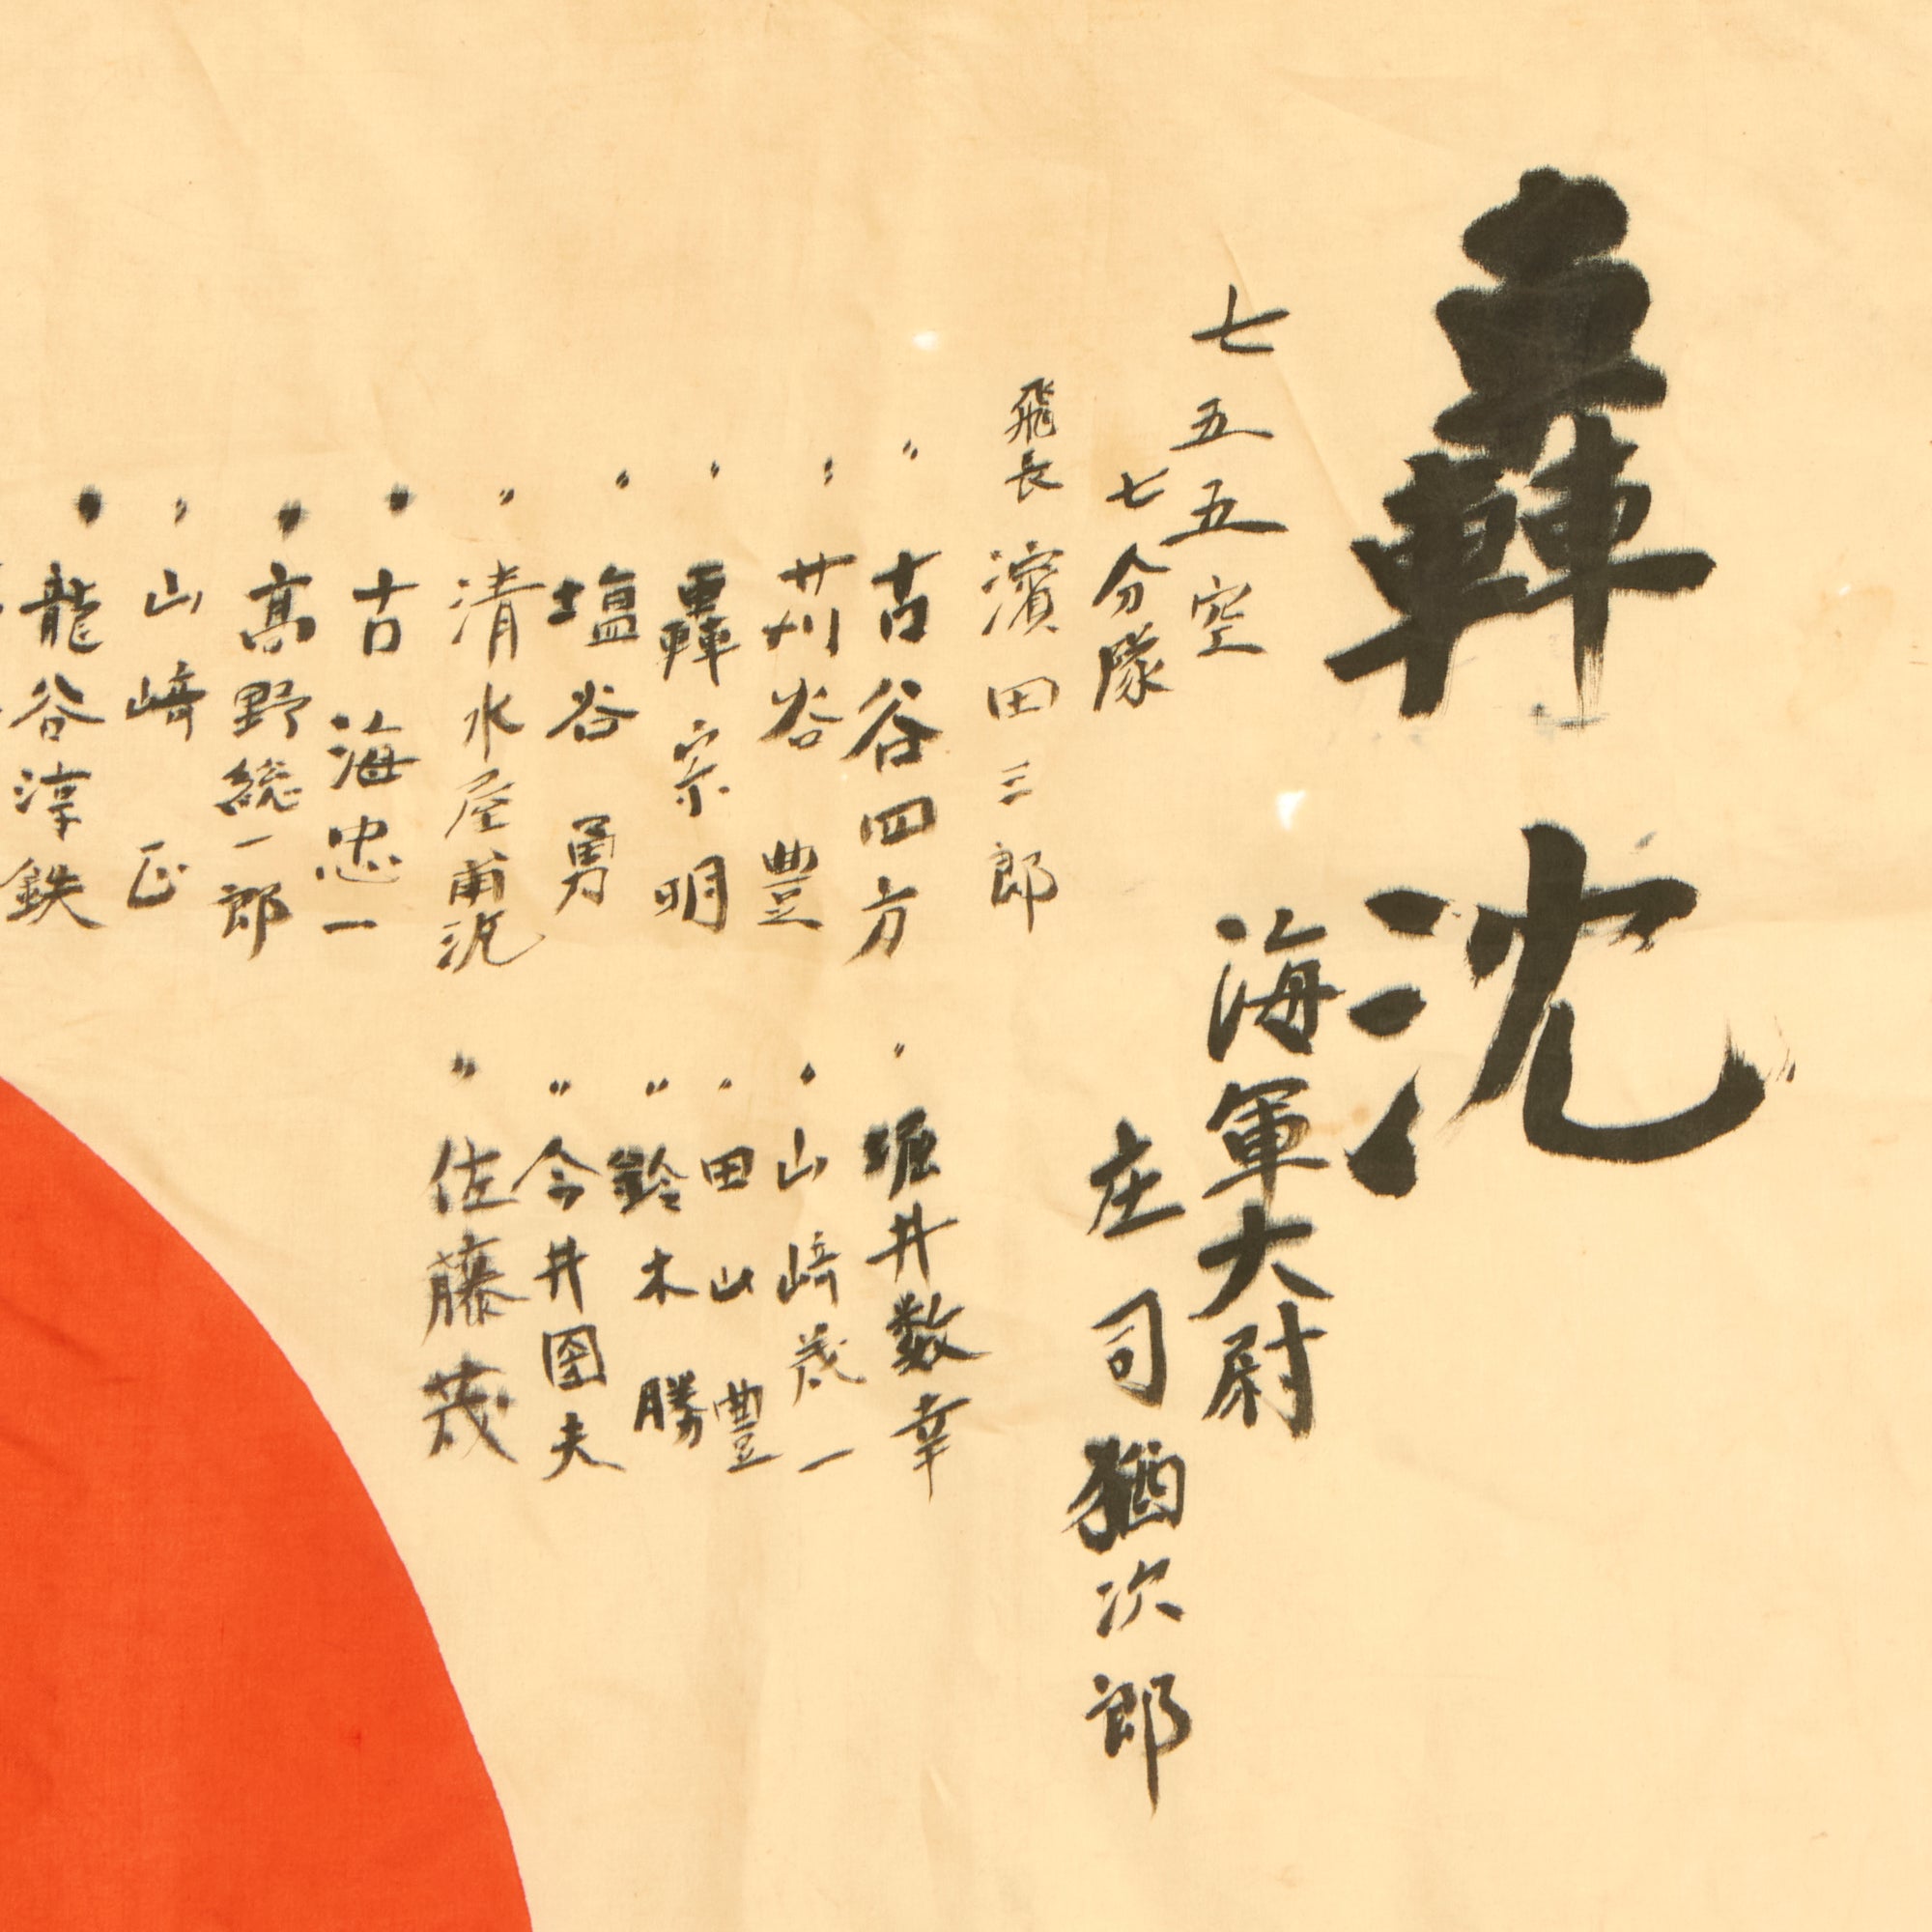 轟沈
七五五空
七分隊
海軍大尉
庄司猶次郎
飛長 濱田三郎
〃 古谷四方
〃 苅谷 豊
〃 轟 宗明
〃 塩谷 勇
〃 清水屋甫
〃 古海忠一
〃 高野総一郎
〃 山崎 正
〃 龍谷淳鉄
〃 堀井数幸
〃 山崎茂一
〃 田山 豊
〃 鈴木 勝
〃 今井国夫
〃 佐藤茂